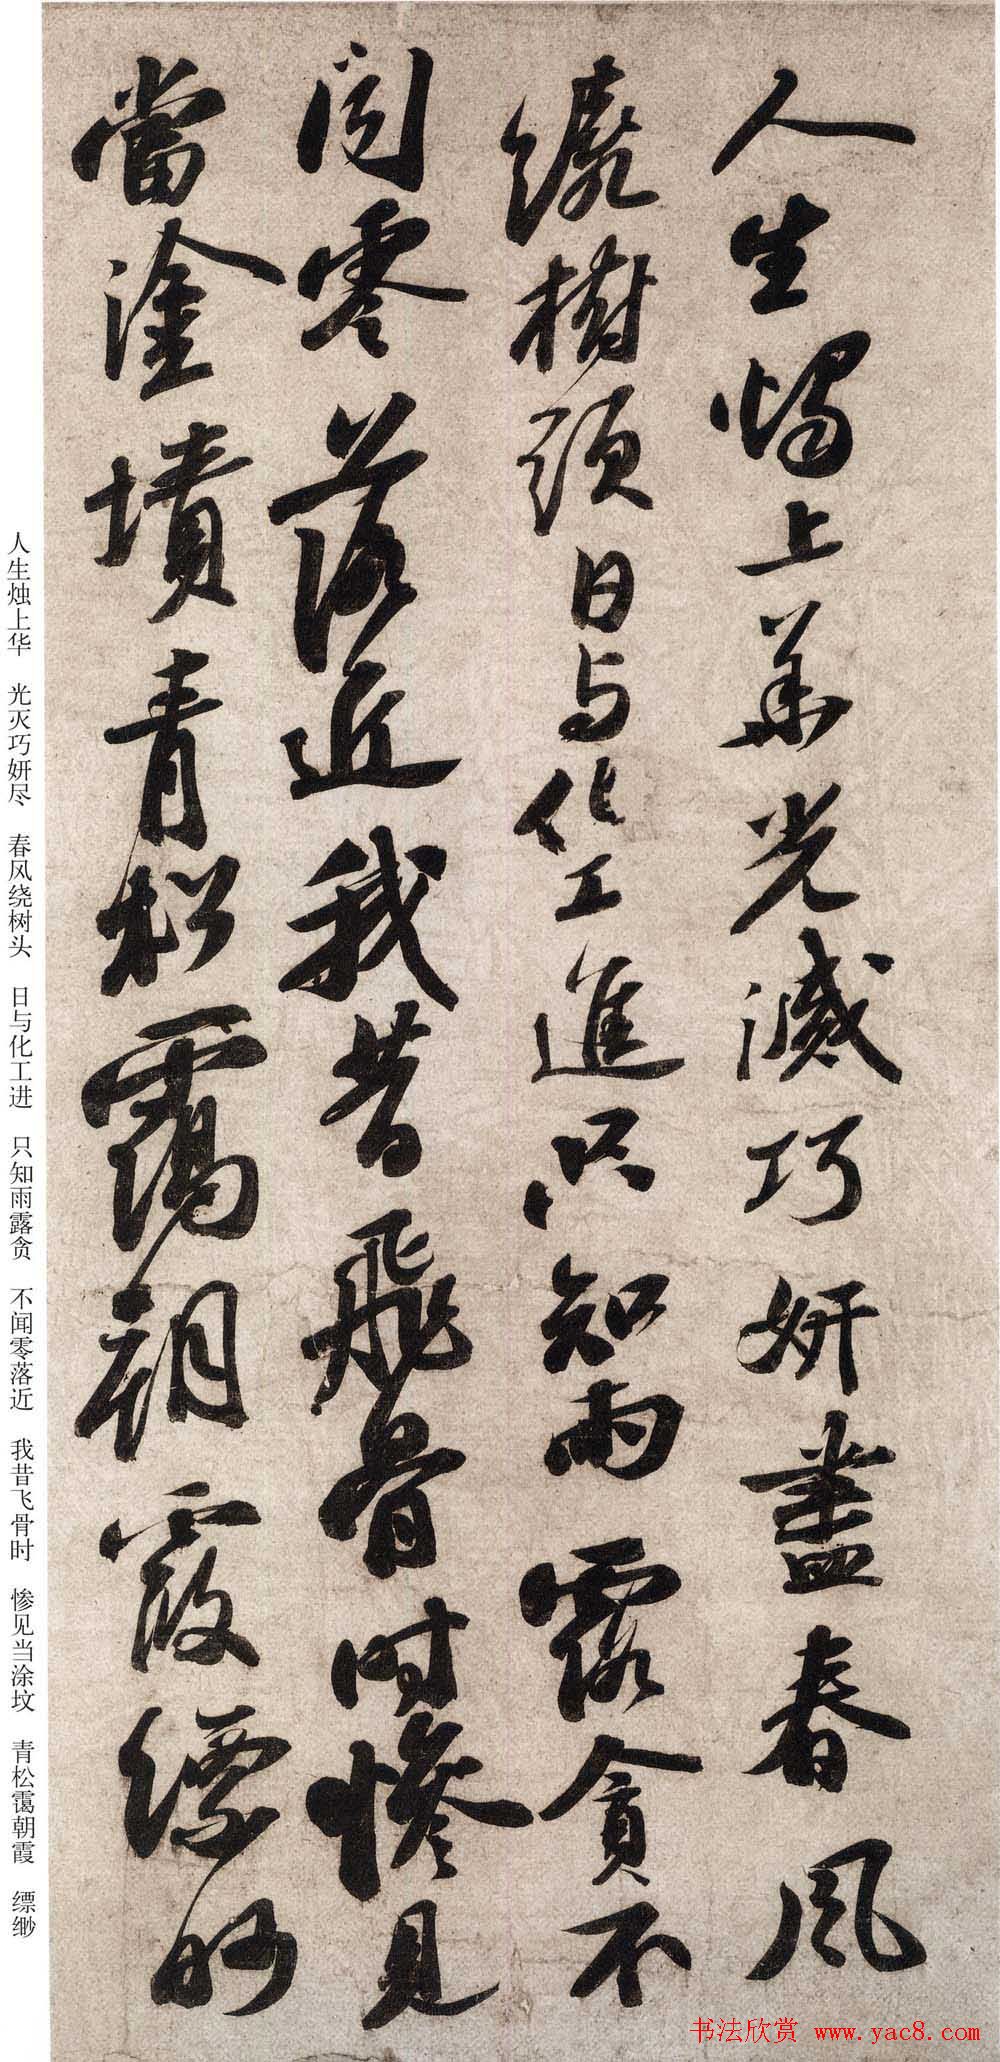 人生燭上華光滅巧妍盡春風
繞樹頭日与化工進只知雨露貪不
聞零落近我昔飛骨時慘見
當塗墳青松靄朝霞縹眇
人生烛上华 光灭巧妍尽 春风绕树头 日与化工进 只知雨露贪 不闻零落近 我昔飞骨时 惨见当涂坟 青松霭朝霞 缥缈
书法欣赏 www.yac8.com